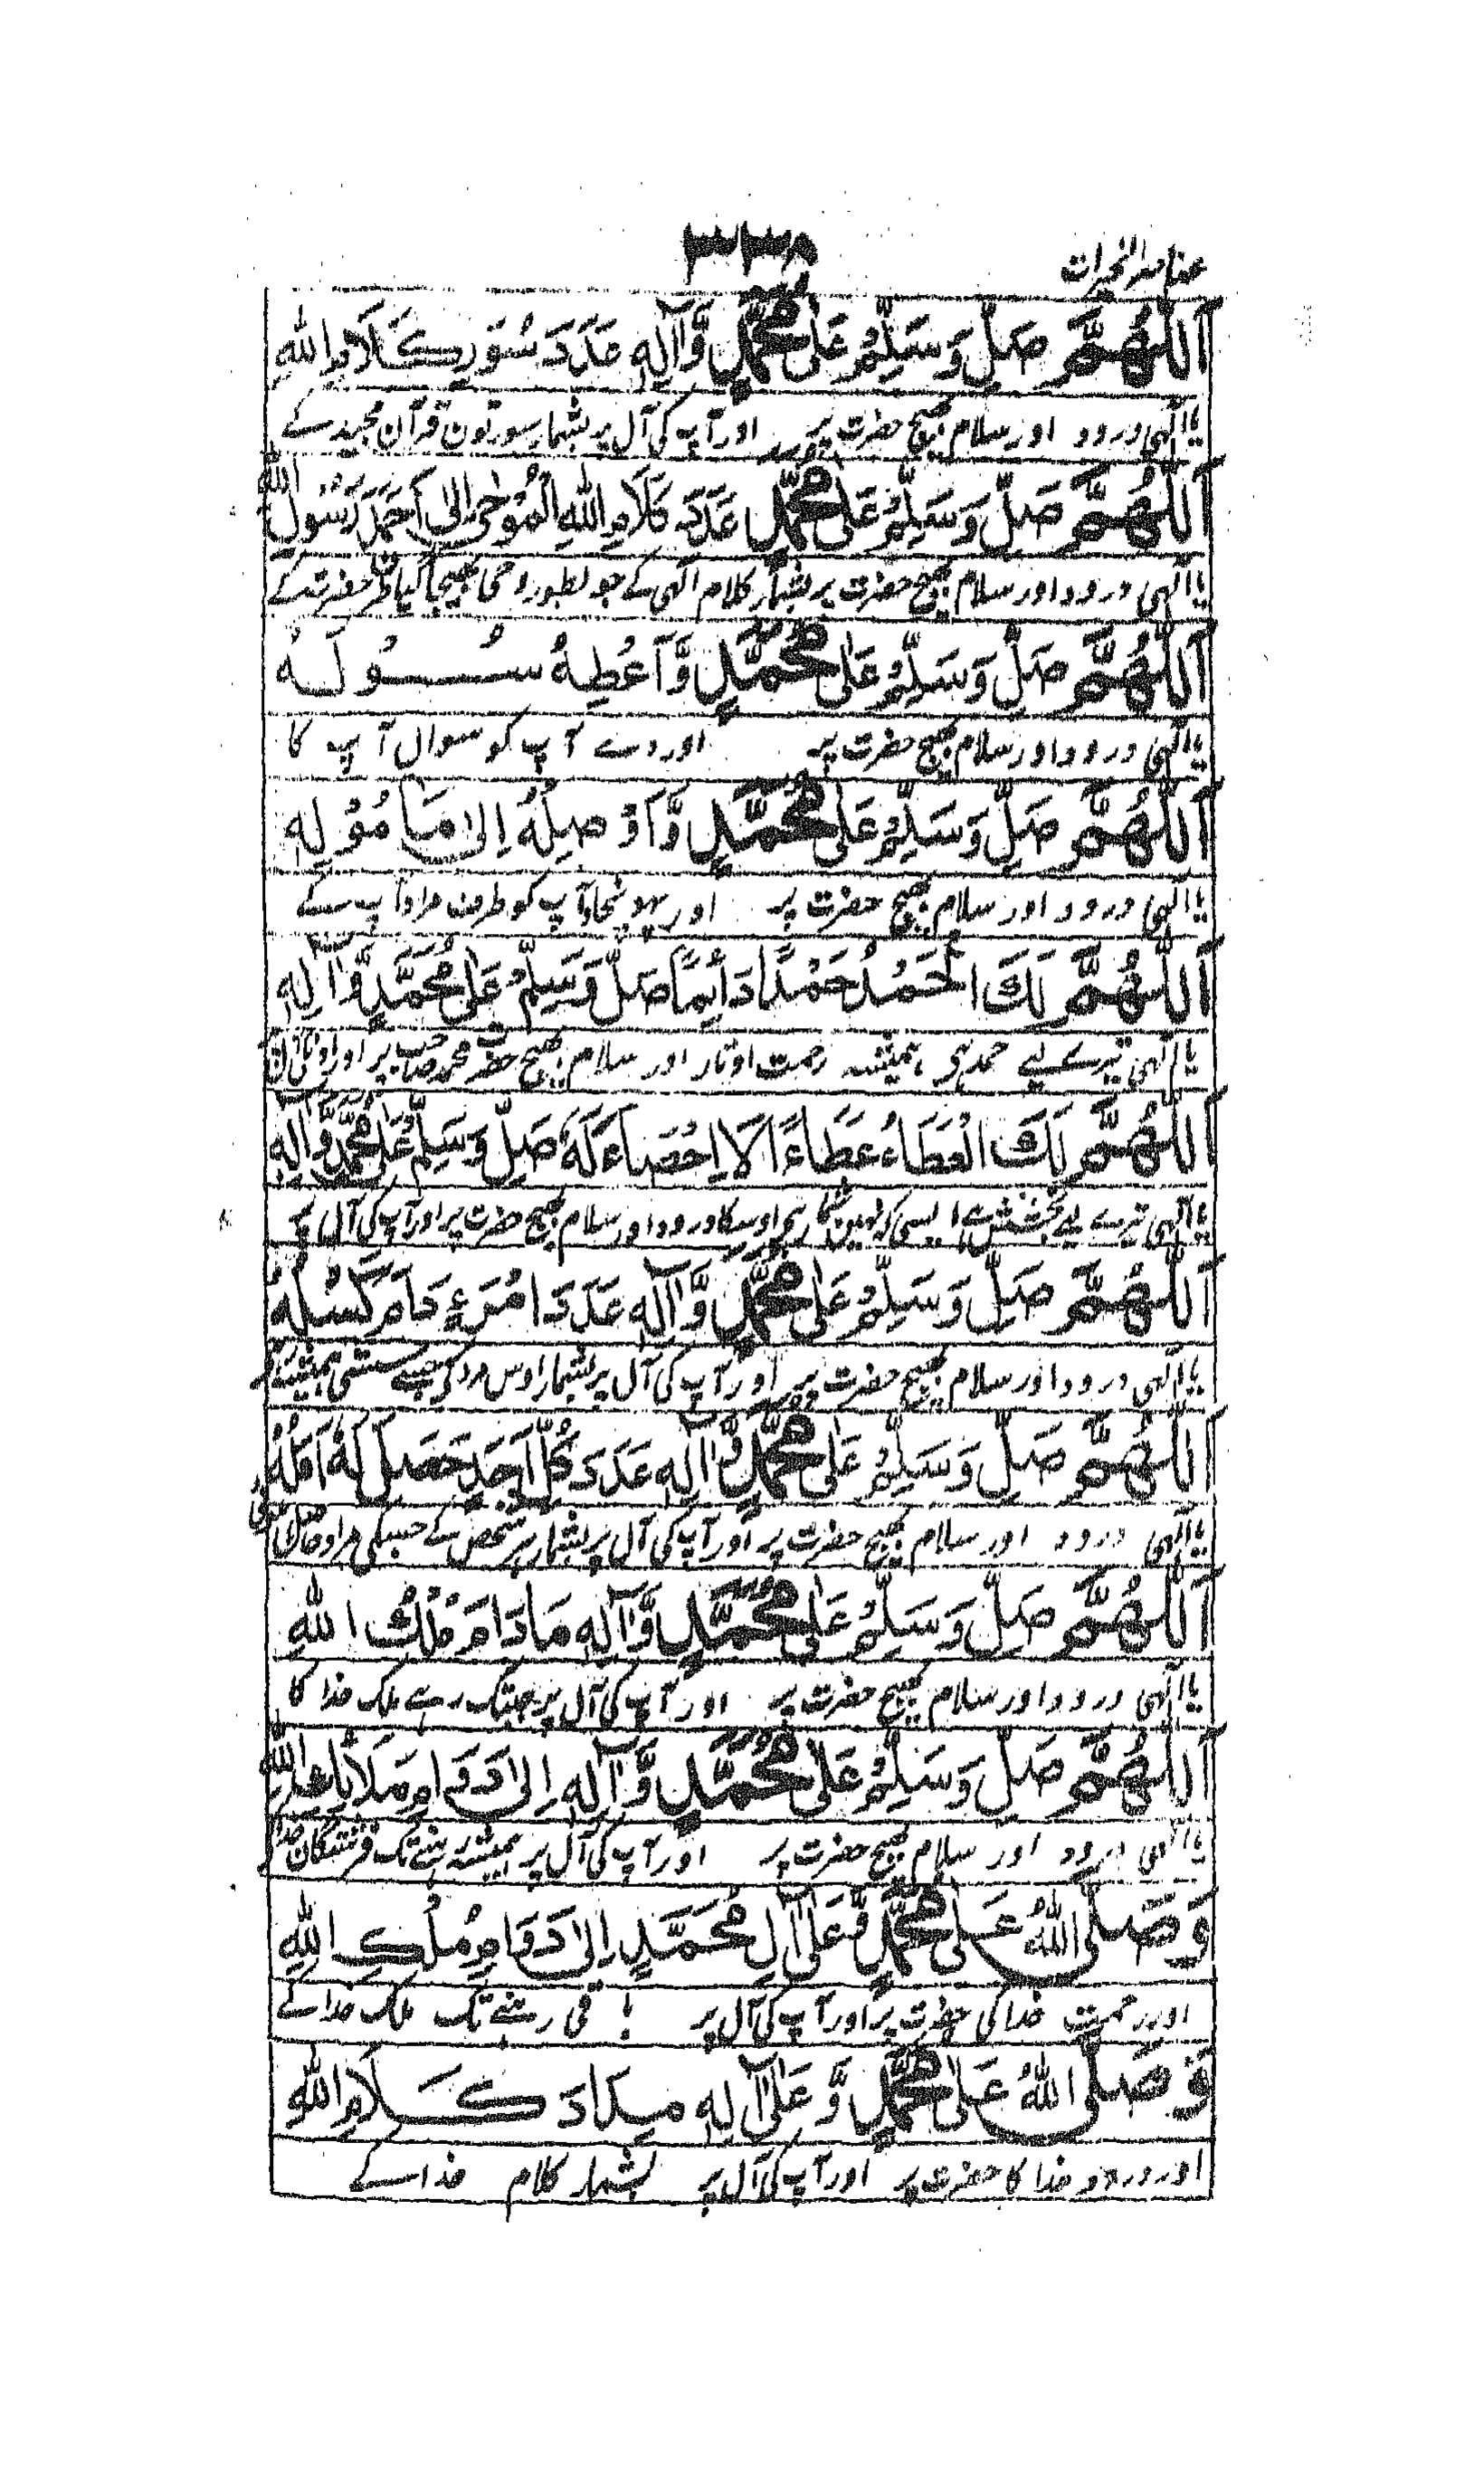 عناصر الخیرات
۳۳۸
اَللّٰهُمَّ صَلِّ وَسَلِّمْ عَلٰى مُحَمَّدٍ وَّاٰلِهٖ عَدَدَ سُوَرِ كَلَامِ اللّٰهِ
یا الٰہی درود اور سلام بھیج حضرت پر اور آپ کی آل پر بشمار سورتون قرآن مجید کے
اَللّٰهُمَّ صَلِّ وَسَلِّمْ عَلٰى مُحَمَّدٍ عَدَدَ كَلَامِ اللّٰهِ الْمُوْحٰى اِلٰى اَحْمَدَ رَسُوْلِ اللّٰهِ
یا الٰہی درود اور سلام بھیج حضرت پر بشمار کلام الٰہی کے جو بطور وحی بھیجا گیا طرف حضرت کے
اَللّٰهُمَّ صَلِّ وَسَلِّمْ عَلٰى مُحَمَّدٍ وَّاَعْطِهٖ سُؤْلَهٗ
یا الٰہی درود اور سلام بھیج حضرت پر اور دے آپ کو سوال آپ کا
اَللّٰهُمَّ صَلِّ وَسَلِّمْ عَلٰى مُحَمَّدٍ وَّاَوْصِلْهُ اِلٰى مَامُوْلِهٖ
یا الٰہی درود اور سلام بھیج حضرت پر اور پہونچا آپ کو طرف مراد آپ کے
اَللّٰهُمَّ لَكَ الْحَمْدُ حَمْدًا دَائِمًا صَلِّ وَسَلِّمْ عَلٰى مُحَمَّدٍ وَّاٰلِهٖ
یا الٰہی تیرے لیے حمد ہی ہمیشہ رحمت اوتار اور سلام بھیج حضرت محمد صاحب پر اور
اَللّٰهُمَّ لَكَ الْعَطَاءُ عَطَاءً لَا اِحْصَاءَ لَهٗ صَلِّ وَسَلِّمْ عَلٰى مُحَمَّدٍ وَّاٰلِهٖ
یا الٰہی تیرے لیے بخشش ہے ایسی کہ نہین شمار ہی اوسکا درود اور سلام بھیج حضرت پر اور آپ کی آل پر
اَللّٰهُمَّ صَلِّ وَسَلِّمْ عَلٰى مُحَمَّدٍ وَّاٰلِهٖ عَدَدَ امْرَءٍ دَامَ كَسْلُهٗ
یا الٰہی درود اور سلام بھیج حضرت پر اور آپ کی آل پر بشمار اوس مرد کی جسے سستی ہمیشہ
اَللّٰهُمَّ صَلِّ وَسَلِّمْ عَلٰى مُحَمَّدٍ وَّاٰلِهٖ عَدَدَ كُلِّ اَحَدٍ حَصَلَ لَهٗ اَمَلُهٗ
یا الٰہی درود اور سلام بھیج حضرت پر اور آپ کی آل پر بشمار ہر شخص کے جسکی مراد حاصل ہوئی
اَللّٰهُمَّ صَلِّ وَسَلِّمْ عَلٰى مُحَمَّدٍ وَّاٰلِهٖ مَا دَامَ مُلْكُ اللّٰهِ
یا الٰہی درود اور سلام بھیج حضرت پر اور آپ کی آل پر جبتک رہے ملک خدا کا
اَللّٰهُمَّ صَلِّ وَسَلِّمْ عَلٰى مُحَمَّدٍ وَّاٰلِهٖ اِلٰى دَوَامِ مَلَائِكَةِ اللّٰهِ
یا الٰہی درود اور سلام بھیج حضرت پر اور آپ کی آل پر ہمیشہ رہنے تک فرشتگان خدا
وَصَلَّى اللّٰهُ عَلٰى مُحَمَّدٍ وَّعَلٰى اٰلِ مُحَمَّدٍ اِلٰى دَوَامِ مُلْكِ اللّٰهِ
اور رحمت خدا کی حضرت پر اور آپ کی آل پر باقی رہنے تک ملک خدا کے
وَصَلَّى اللّٰهُ عَلٰى مُحَمَّدٍ وَّعَلٰى اٰلِهٖ مِدَادَ كَلَامِ اللّٰهِ
اور درود خدا کا حضرت پر اور آپ کی آل پر بشمار کلام خدا کے